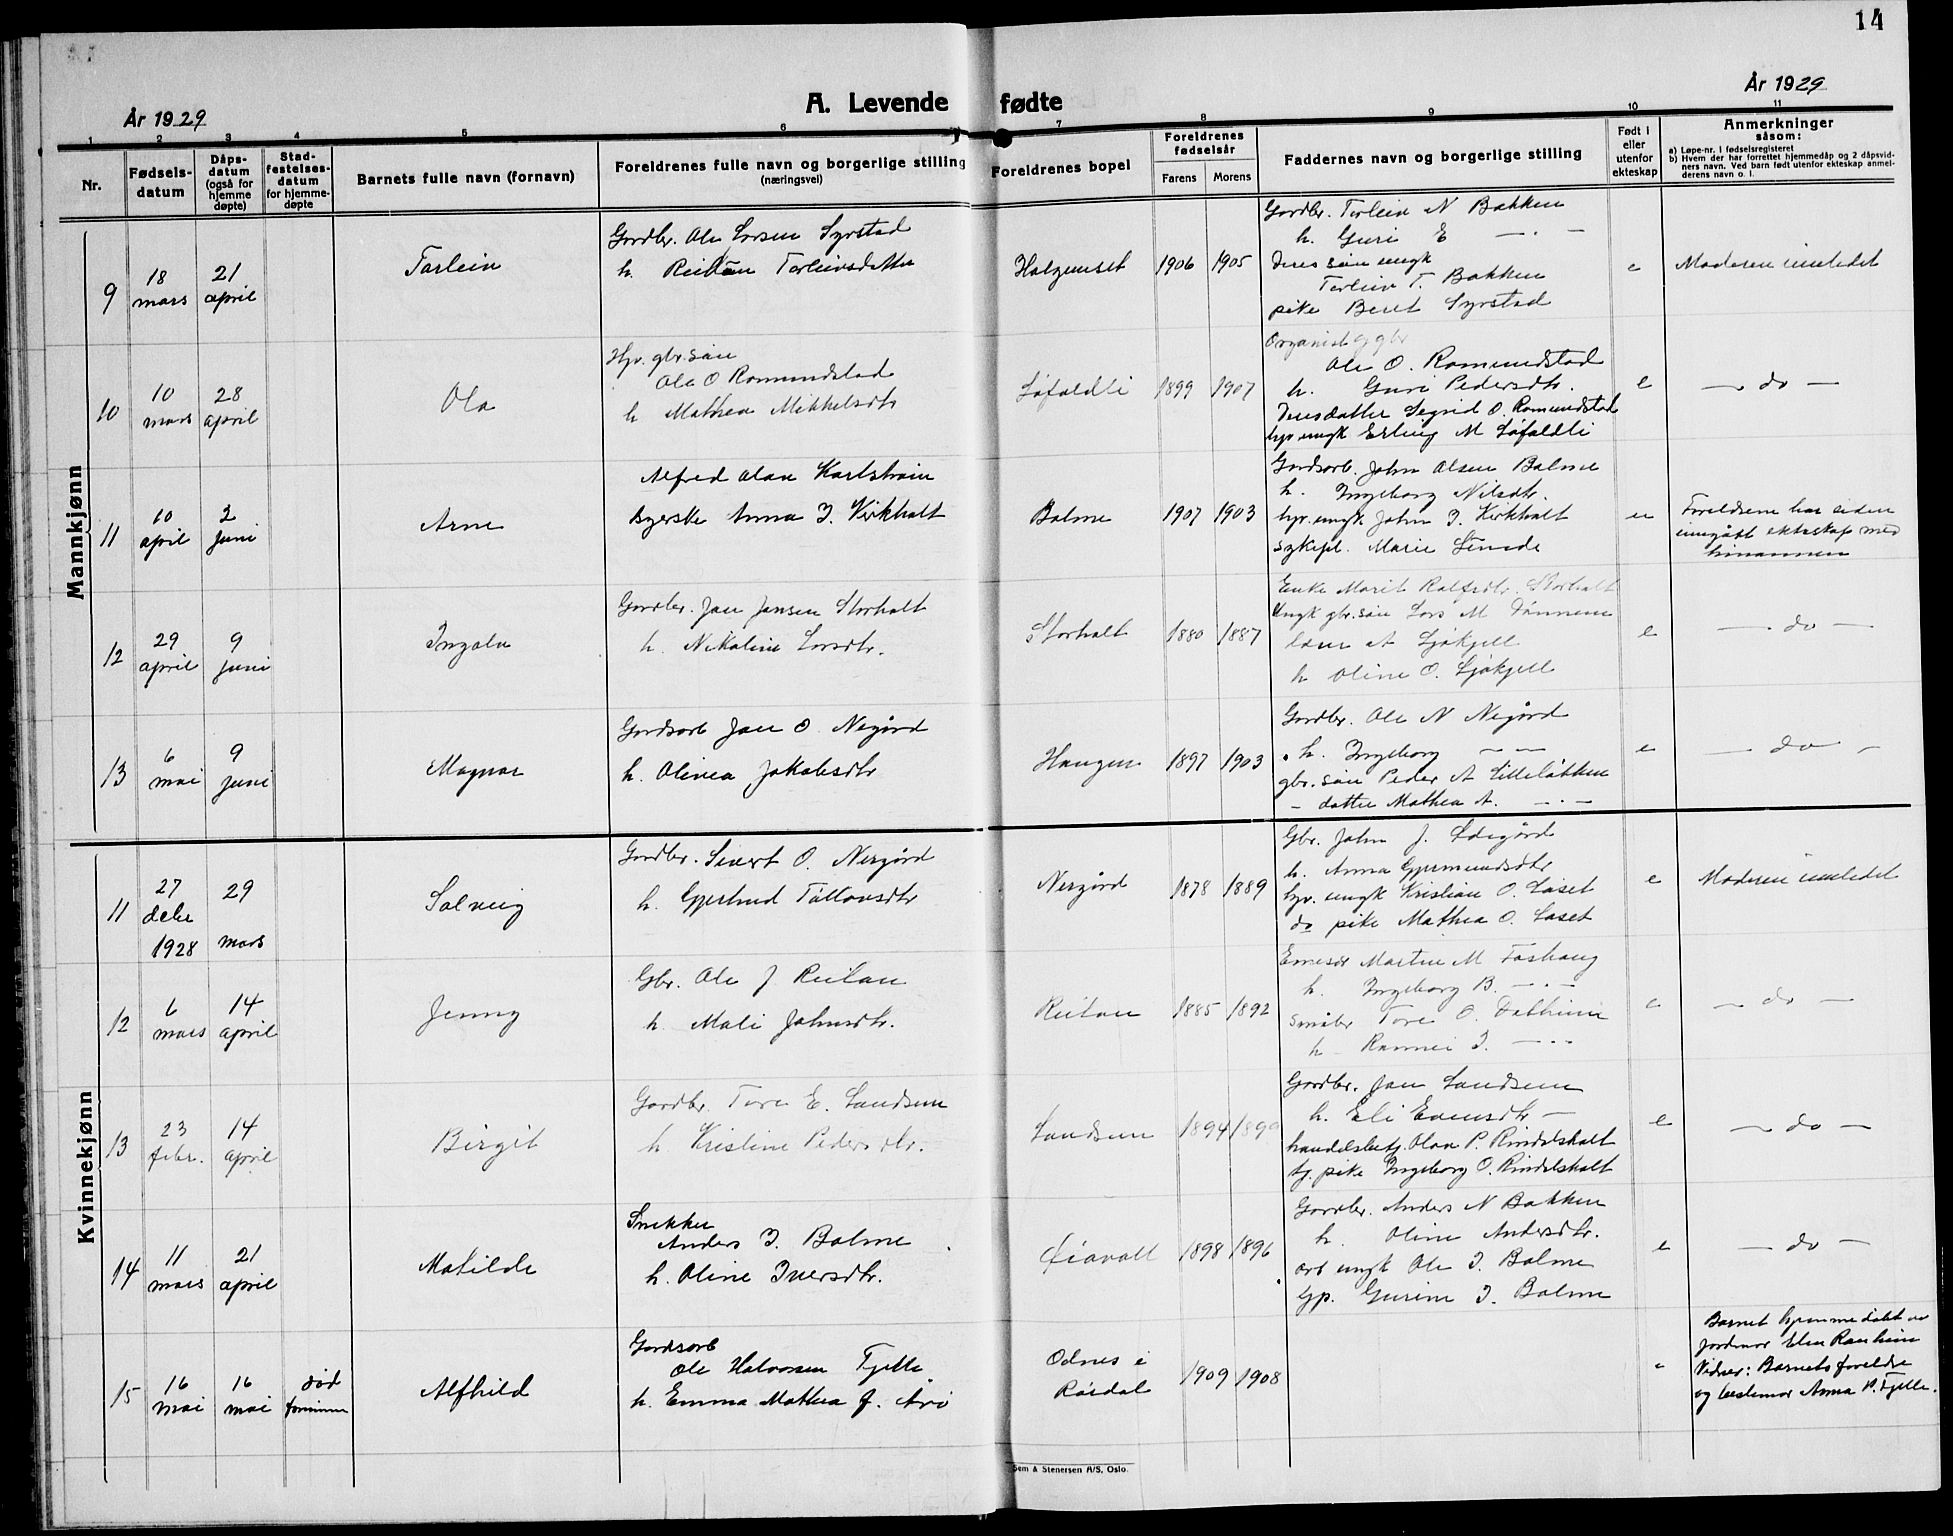 14
År 1929
A. Levende fødte
År 1929
1 2 3 4 5 6 7 8 9 10 11
Nr.
Fødsels-
datum
Dåps-
datum
(også for
hjemme
døpte)
Stad-
festelses-
datum
for hjemme-
døpte
Barnets fulle navn (fornavn)
Foreldrenes fulle navn og borgerlige stilling
(næringsvei)
Foreldrenes bopel
Foreldrenes
fødselsår
Farens Morens
Faddernes navn og borgerlige stilling
Født i
eller
utenfor
ekteskap
Anmerkninger
såsom:
a) Løpe-nr. i fødselsregisteret
b) Hvem der har forrettet hjemmedåp og 2 dåpsvid-
ners navn. Ved barn født utenfor ekteskap anmel-
derens navn o. l.
Mannkjønn
9
18
mars
21
april
Torlein
Gordbr. Ole Larsen Syrstad
h. Torleivsdatter
Holgumset
1906 1905
Gordbr. Torleiv N Bakken
h. Guri E — . —
Deres søn ungk
Torleiv T. Bakken
pike Beret Syrstad
e
Moderen innledet
10
10
mars
28
april
Ola
Hjv. gbr. søn
Ole O Romundstad
h Mathea Mikkelsdtr
Løfaldli
1899 1907
Organist og gbr
Ole O. Romundstad
h. Guri Pedersdtr.
Deres datter Sigrid O. Romundstad
hjv ungk Erling M Løfaldli
e
— do —
11
10
april
2
juni
Arne
Alfred Olav Karlstrøm
Byerske Anna J. Kirkholt
Bolme
1907 1903
Gordsarb. John Olsen Bolme
h. Ingeborg Nilsdtr.
hjv. ungk John J. Kirkholt
sykepl. Marie
ue
Foreldrene har siden
inngått ekteskap med
hinannen
12
29
april
9
juni
Ingolv
Gordbr. Jon Jonsen Storholt
h. Nikoline Larsdtr.
Storholt
1880 1887
Enke Marit Rolfsdtr. Storholt
Ungk gbr. søn Lars M Tønnem
A Sjøkjell
h Oline O. Sjøkjell
e
— do —
13
6
mai
9
juni
Magnar
Gordsarb Jon O. Negård
h. Olinea Jakobsdtr
Haugen
1897 1903
Gordbr. Ole N Negård
h. Ingeborg — —
gbr. søn Peder A Lilleløkken
— datter Mathea A. — . —
e
— do —
Kvinnekjønn
11
27
debr
1928
29
mars
Solveig
Gordbr. Sivert O. Nergård
h. Gjertrud Tollovsdtr
Nergård
1878 1889
Gbr. John J. Ødegård
h. Anna Gjermundsdtr
hjv. ungk Kristian O. Løset
do pike Mathea O. Løset
e
Moderen innledet
12
6
mars
14
april
Jenny
Gbr. Ole J Reitan
h. Mali Johnsdtr.
Reitan
1885 1892
Martin M Foshaug
h. Ingeborg B. — . —
Småbr Tore O.
h J. — . .
e
— do —
13
23
febr.
14
april
Birgit
Gordbr. Tore E. Landsem
h Kristine Pedersdtr.
Landsem
1894
Gordbr. Jon Landsem
h. Eli Evensdtr —
handelsbetj. Olav P. Rindalsholt
tj. pike Ingeborg O. Rindalsholt
e
— do —
14
11
mars
21
april
Matilde
Snekker
Anders J. Bolme
h. Oline Iversdtr.
Øiavoll
1898 1896
Gordbr. Anders N Bakken
h. Oline Andersdtr.
arb ungk Ole J. Bolme
Gp. Gurine J. Bolme
e
— do —
15
16
mai
16
mai
død
forinnen
Alfhild
Gordsarb
Ole Halvorsen Fjelle
h. Emma Mathea J.
Odnes i
Roisdal
1909 1908
e
Barnet hjemmedøbt av
jordmor Elen Ranheim
Vidner: Barnets foreldre
og bestemor Anna P. Fjelle.
Sem & Stenersen A/S, Oslo.